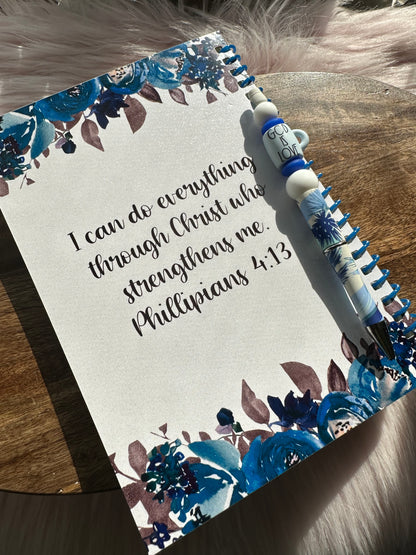 I can do everything
through Christ who
strengthens me.
Phillipians 4:13
GOD
IS
LOVE